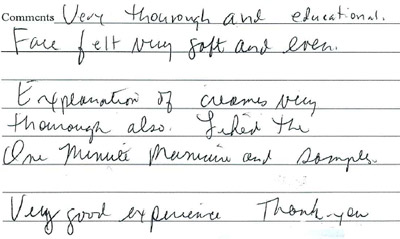 Comments Very thourough and educational.
Face felt very soft and even.
Explanation of creames very
thourough also. Liked the
One Minute Manicure and samples.
Very good experience Thank-you